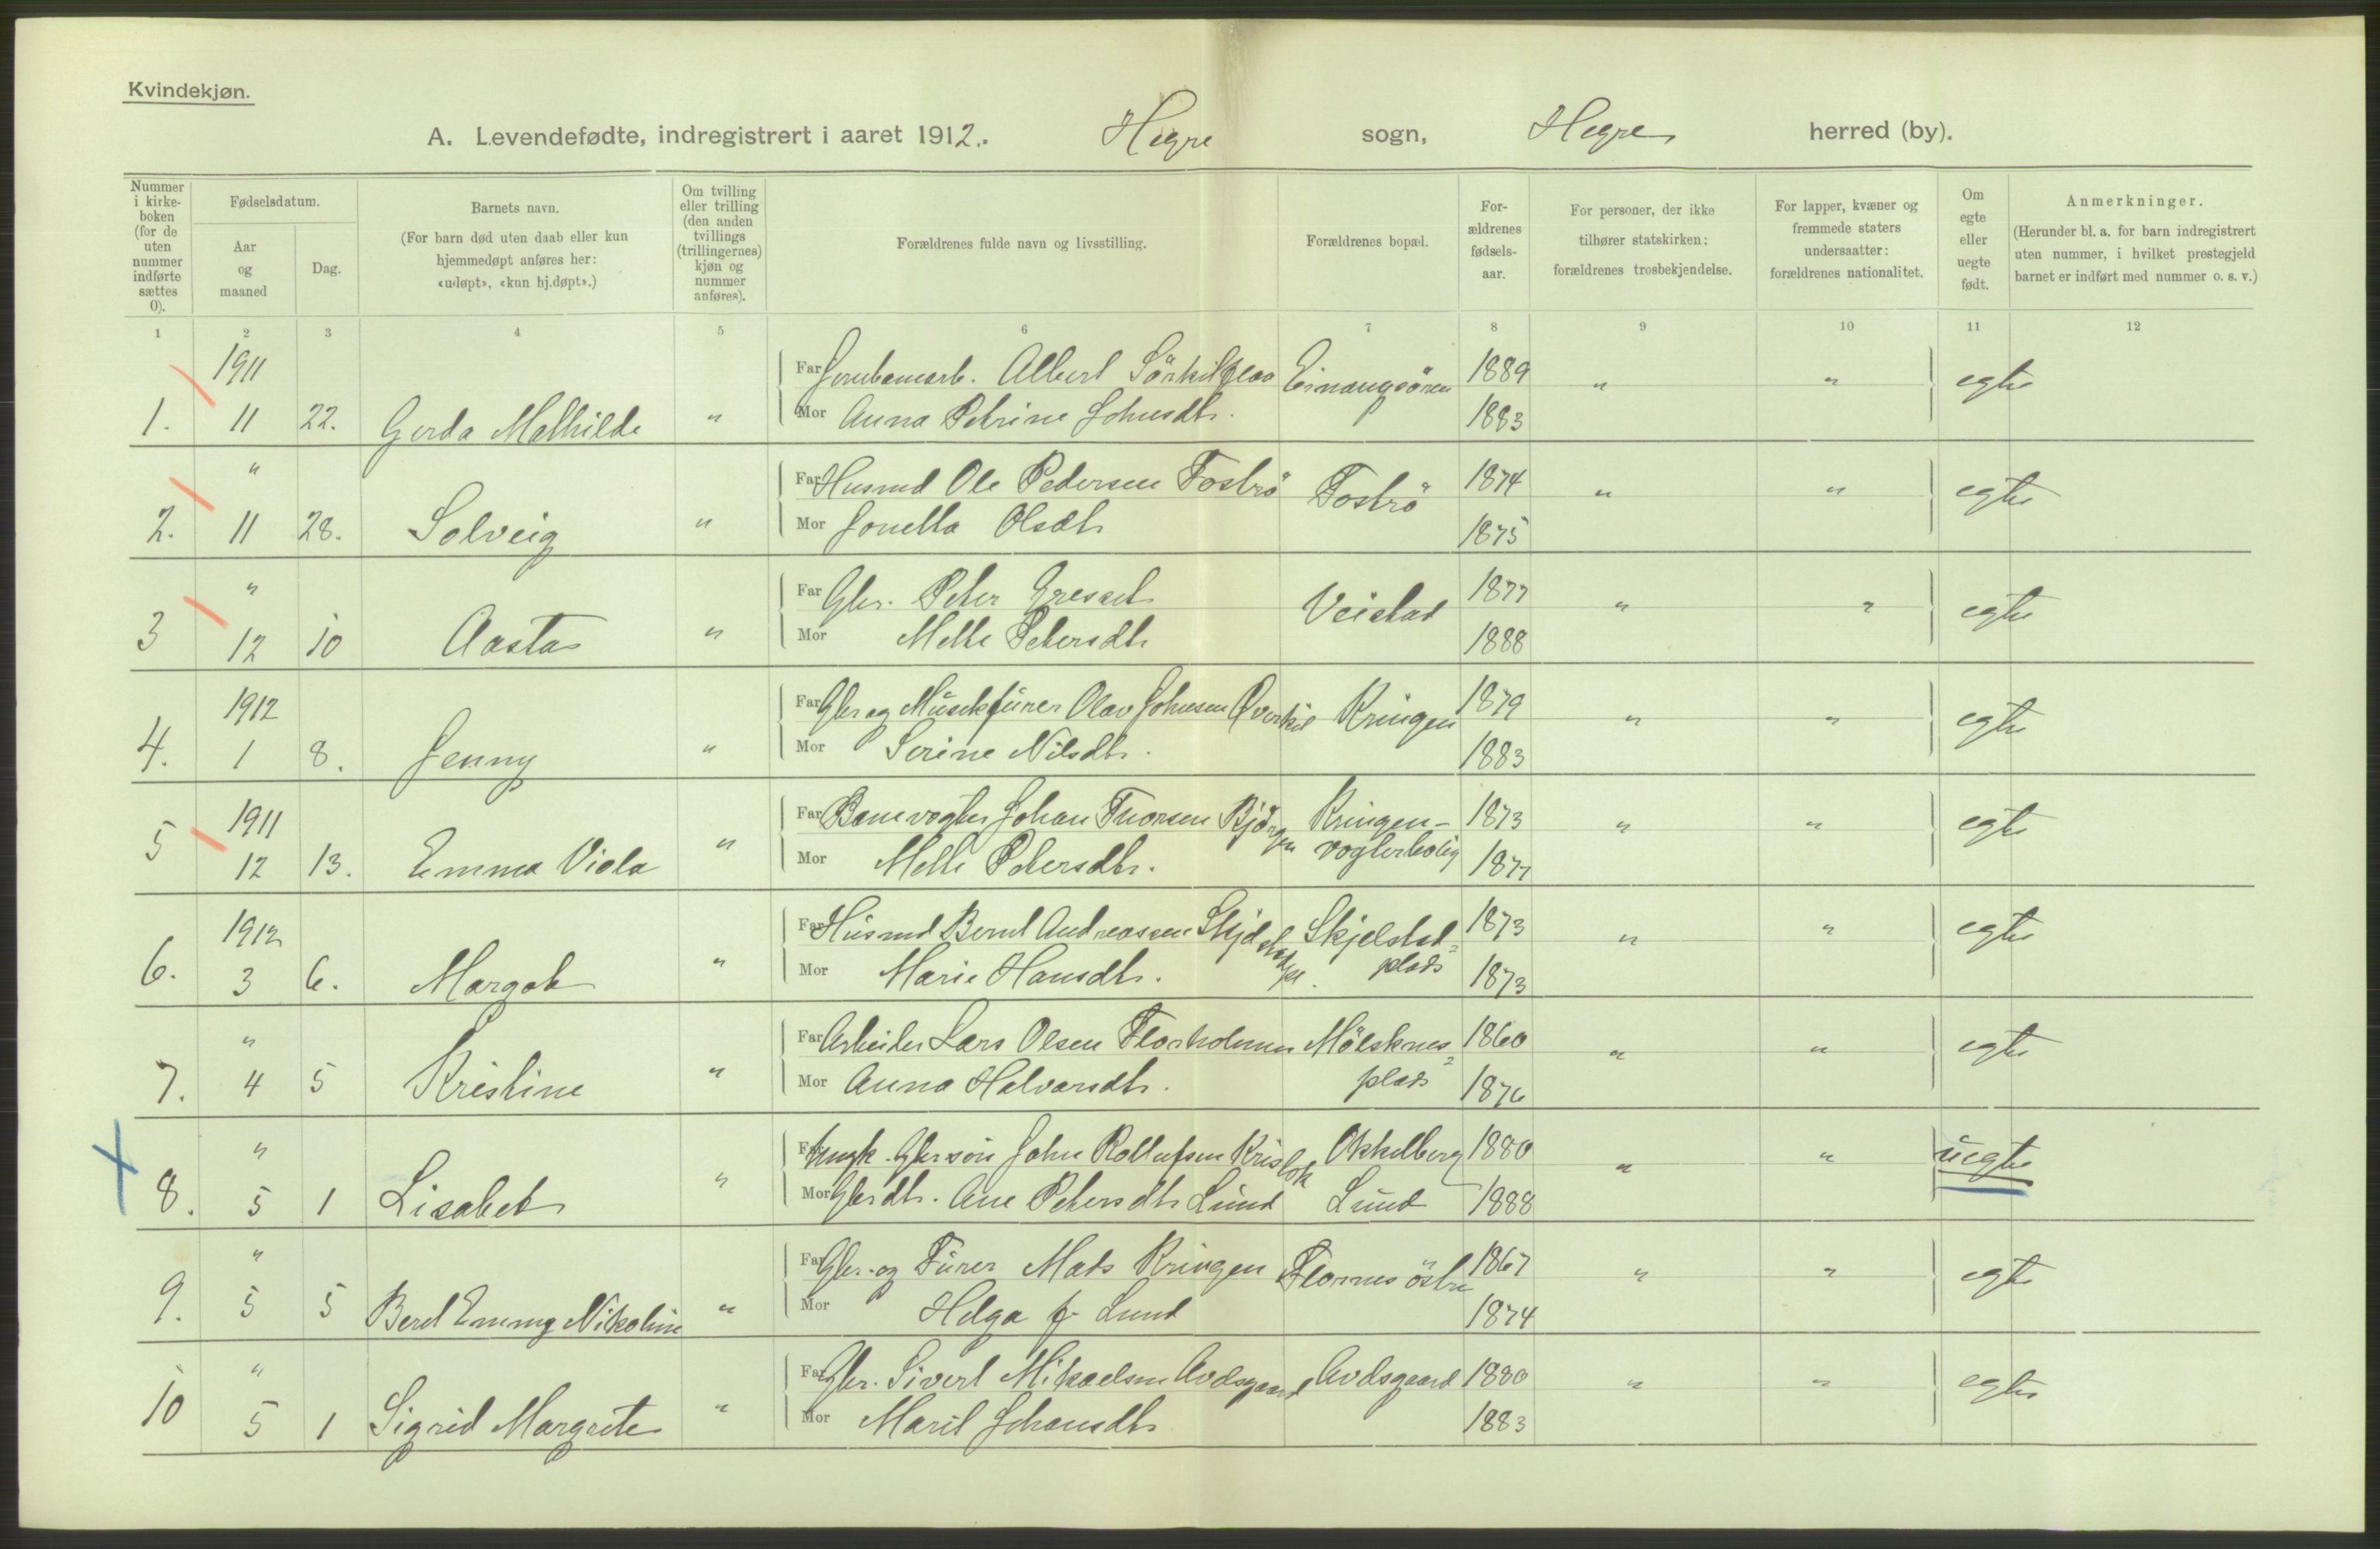 Kvindekjøn.
A. Levendefødte, indregistrert i aaret 1912. Hegre sogn, Hegre herred (by).
Nummer i kirkeboken (for de uten nummer indførte sættes 0).
Fødselsdatum.
Aar og maaned
Dag.
Barnets navn.
(For barn død uten daab eller kun hjemmedøpt anføres her: «udøpt», «kun hj.døpt».)
Om tvilling eller trilling (den anden tvillings (trillingernes) kjøn og nummer anføres).
Forældrenes fulde navn og livsstilling.
Forældrenes bopæl.
Forældrenes fødselsaar.
For personer, der ikke tilhører statskirken: forældrenes trosbekjendelse.
For lapper, kvæner og fremmede staters undersaatter: forældrenes nationalitet.
Om egte eller uegte født.
Anmerkninger.
(Herunder bl. a. for barn indregistrert uten nummer, i hvilket prestegjeld barnet er indført med nummer o. s. v.)
1 2 3 4 5 6 7 8 9 10 11 12
1911 Far Jernbanearb. Albert 1889 " " egte
1. 11 22. Gerda Mathilde " Mor Anna Petrine Johnsdtr. 1883
" Far Husmd Ole Pedersen Fosbrö Fosbrö 1874 " " egte
2. 11 28. Solveig " Mor Jonetta Olsdtr 1875
" Far Gbr. Peter Gresset Veistad 1877 " " egte
3 12 10 Aasta " Mor Mette Petersdtr 1888
1912 Far Gbr og Musekfurer Olav Johnsen Överkil Kringen 1879 " " egte
4. 1 8. Jenny " Mor Serine Nilsdtr. 1883
1911 Far Banevogter Johan Tuorsen Bjørgen Kringen- 1873 " " egte
5 12 13. Emma Viola " Mor Mette Petersdtr. vogterbolig 1877
1912 Far Husmd Bernt Andreassen Skjelstadpl. Skjelstad- 1873 " " egte
6. 3 6. Margot " Mor Marie Hansdtr. plads 1873
" Far Arbeider Lars Olsen Florholmen Mölsknes- 1860 " " egte
7. 4 5 Kristine " Mor Anna Halvarsdtr. plads 1876
" Far Ungk. Gbrsön John Rollefsen Okkelberg 1880 " " uegte
8. 5 1 Lisabet " Mor Gbrdtr. Ane Petersdtr Lund Lund 1888
" Far Gbr. og Furer Mats Kringen Flornes östre 1867 " " egte
9. 5 5 Beret Emmy Nikoline " Mor Helga f. Lund 1874
" Far Gbr. Sivert Mikaelsen Avdsgaard Avdsgaard 1880 " " egte
10 5 1 Sigrid Margrete " Mor Marit Johansdtr 1883